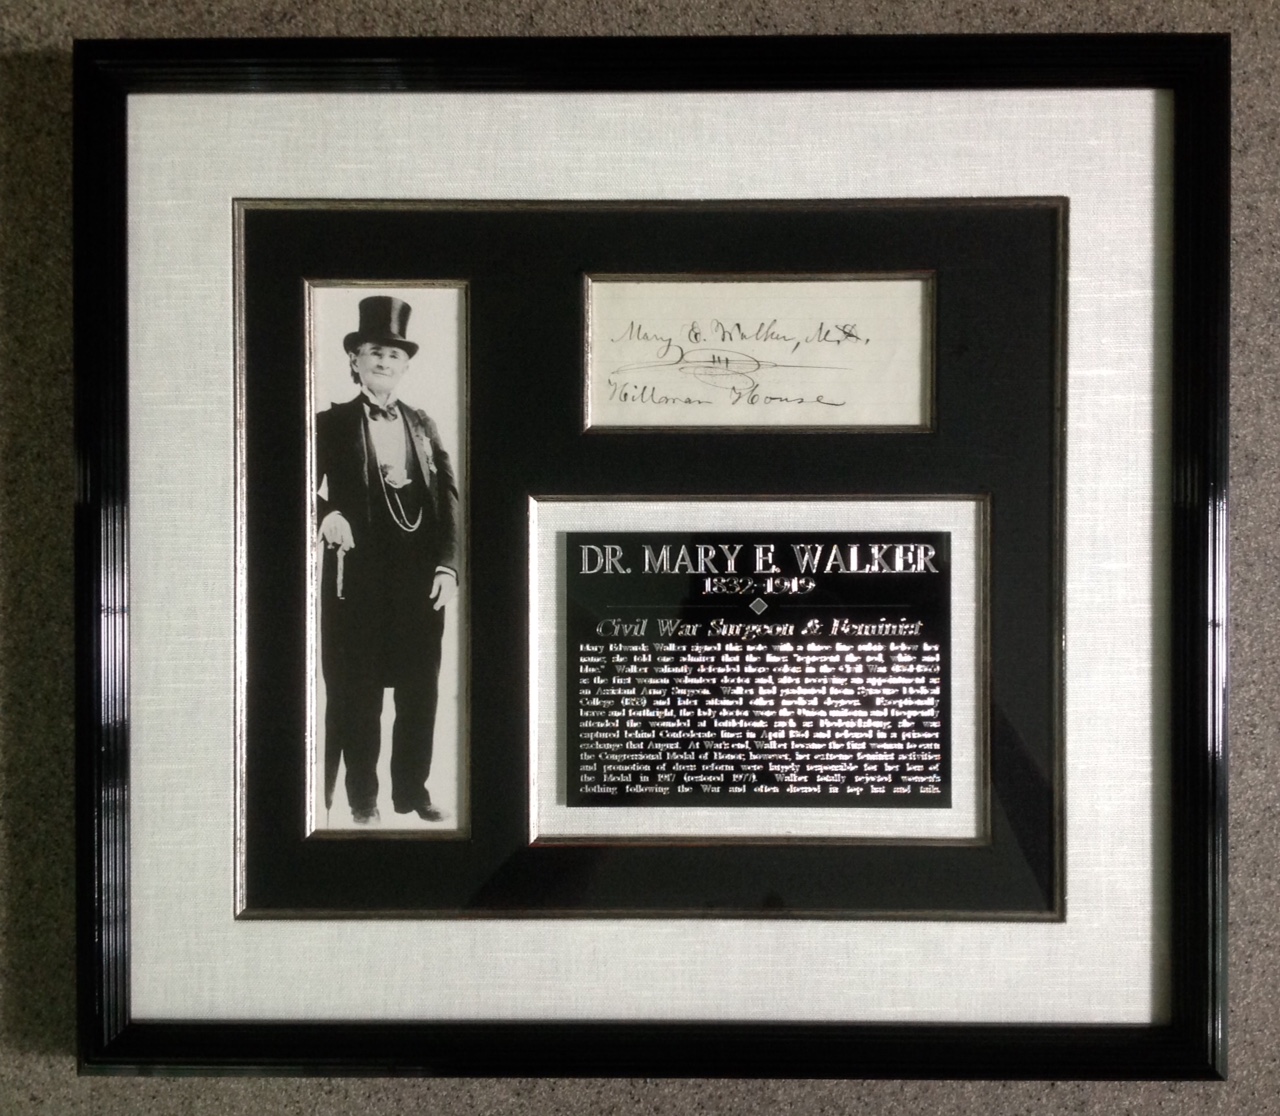 Mary E. Walker, M.D.
Hillman House
DR. MARY E. WALKER
1832-1919
Civil War Surgeon & Feminist
Mary Edwards Walker signed this note with a three line rubric below her
name; she told one admirer that the lines "represent the red, white and
blue." Walker valiantly defended those colors in the Civil War (1861-1865)
as the first woman volunteer doctor and, after receiving an appointment as
an Assistant Army Surgeon. Walker had graduated from Syracuse Medical
College (1855) and later attained other medical degrees. Exceptionally
brave and forthright, the lady doctor wore the Union uniform and frequently
attended the wounded at battlefronts such as Fredericksburg; she was
captured behind Confederate lines in April 1864 and released in a prisoner
exchange that August. At War's end, Walker became the first woman to earn
the Congressional Medal of Honor; however, her extreme feminist activities
and promotion of dress reform were largely responsible for her loss of
the Medal in 1917 (restored 1977). Walker totally rejected women's
clothing following the War and often dressed in top hat and tails.